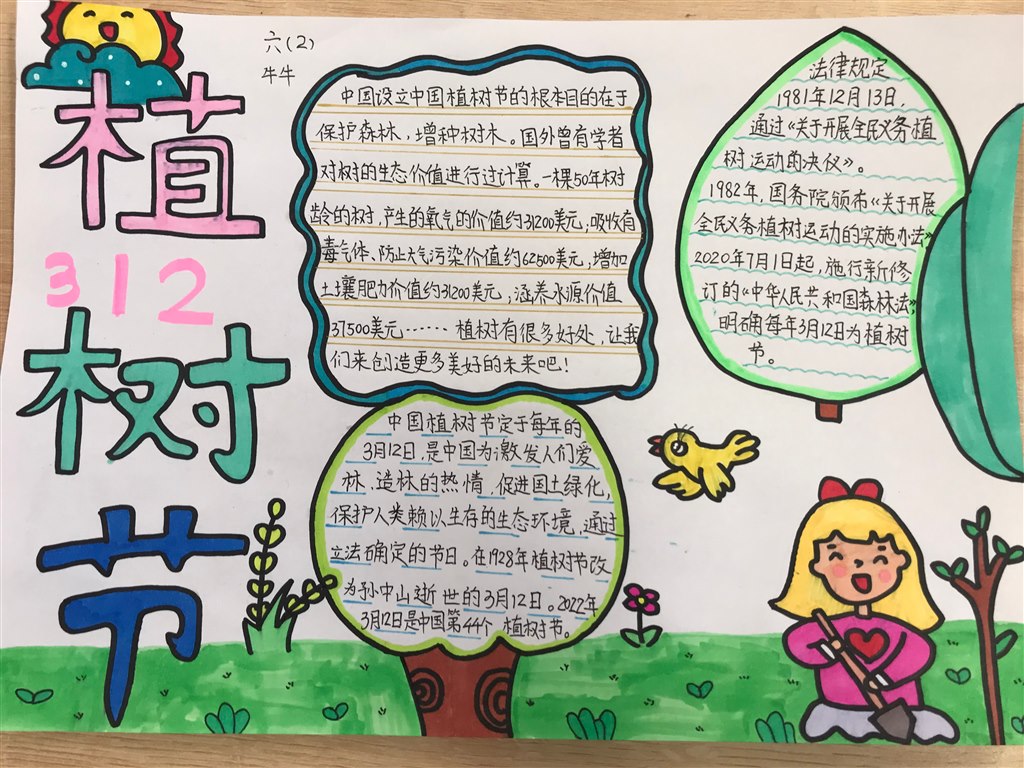 植
312
树
节
六(2)
牛牛
中国设立中国植树节的根本目的在于
保护森林,增种树木。国外曾有学者
对树的生态价值进行过计算。一棵50年树
龄的树,产生的氧气的价值约31200美元;吸收有
毒气体、防止大气污染价值约62500美元;增加
土壤肥力价值约31200美元;涵养水源价值
37500美元……植树有很多好处,让我
们来创造更多美好的未来吧!
中国植树节定于每年的
3月12日,是中国为激发人们爱
林、造林的热情,促进国土绿化,
保护人类赖以生存的生态环境,通过
立法确定的节日。在1928年植树节改
为孙中山逝世的3月12日。2022年
3月12日是中国第44个植树节。
法律规定
1981年12月13日,
通过《关于开展全民义务植
树运动的决仪》。
1982年,国务院颁布《关于开展
全民义务植树运动的实施办法》
2020年7月1日起,施行新修
订的《中华人民共和国森林法》
明确每年3月12日为植树
节。